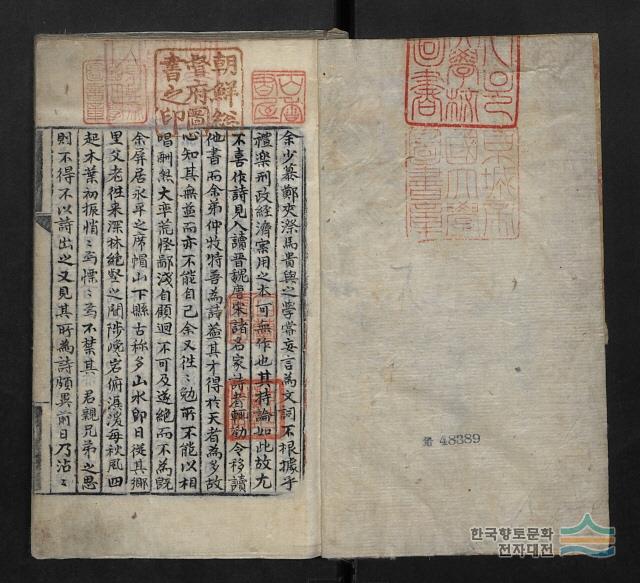 余少慕鄭夾漈馬貴與之學嘗妄言爲文詞不根據乎
禮樂刑政經濟案用之本可無作也其持論如此故尤
不喜作詩見人讀晉魏唐宋諸名家詩者輒勸令移讀
他書而余弟仲牧特善爲詩蓋其才得於天者爲多故
心知其無益而亦不能自已余又往〻勉所不能以相
唱酬然大率荒怪鄙淺自顧迴不可及遂絶而不爲旣
余屏居永平之席帽山下縣古稱多山水卽日從其鄕
里父老徃來深林絶壑之間陟巉岩俯湍瀑每秋風四
起木葉初振悄〻焉慄〻焉不禁其 君親兄弟之思
則不得不以詩出之又見其所爲詩頗異前日乃沾〻
朝鮮總
督府圖
書之印
48389
한국향토문화
전자대전